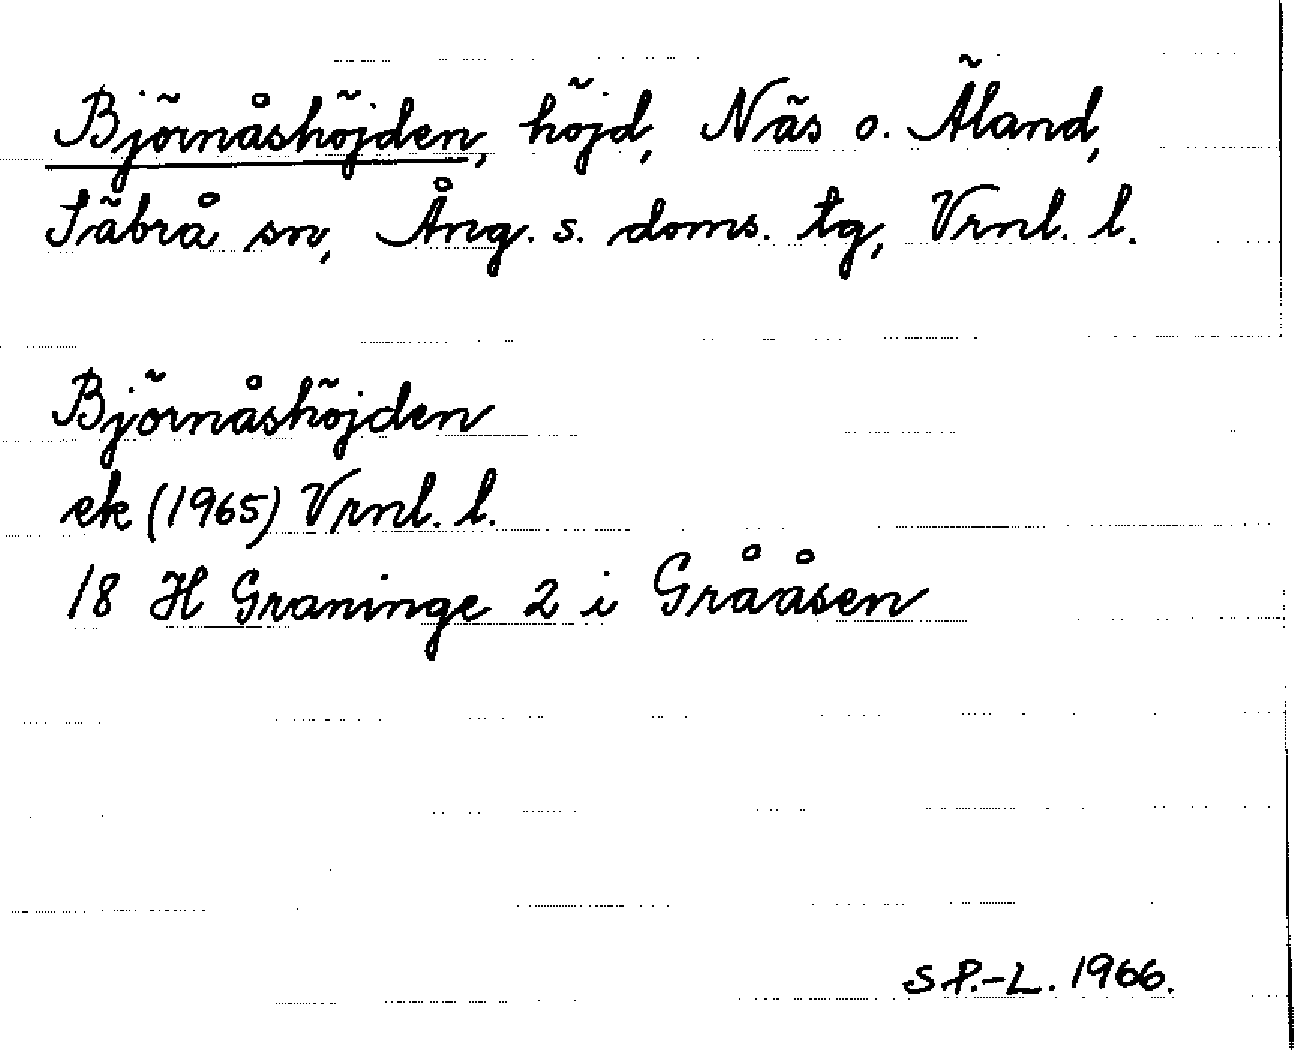 Björnåshöjden, höjd, Näs o. Äland,
Säbrå sn, Ång. s. doms. tg, Vrnl. l.
Björnåshöjden
ek (1965) Vrnl. l.
18 H Graninge 2 i Grååsen
S P.-L. 1966.